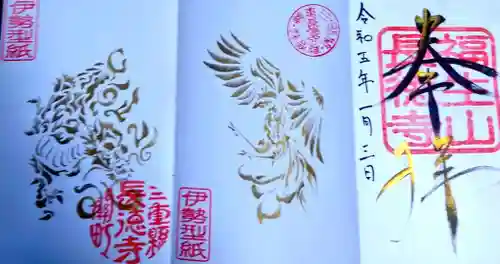 伊勢型紙
三重縣
長徳寺
關町
伊勢型紙
令和五年一月三日
奉
福生山
長徳寺